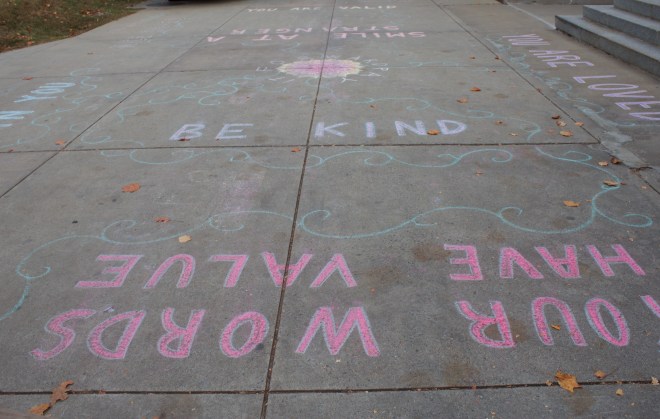 SMILE AT A
STRANGER
YOU ARE LOVED
YOU
BE KIND
YOUR WORDS
HAVE VALUE